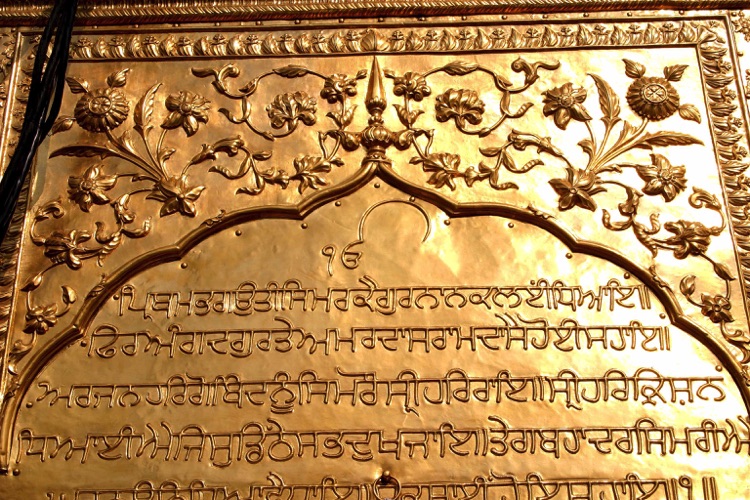 ੴ
ਪ੍ਰਿਥਮਭਗਉਤੀਸਿਮਰਕੈਗੁਰਨਾਨਕਲਈਂਧਿਆਇ॥
ਫਿਰਅੰਗਦਗੁਰਤੇਅਮਰਦਾਸਰਾਮਦਾਸੈਹੋਈਸਹਾਇ॥
ਅਰਜਨਹਰਿਗੋਬਿੰਦਨੂੰਸਿਮਰੌਸ੍ਰੀਹਰਿਰਾਇ॥ਸ੍ਰੀਹਰਿਕ੍ਰਿਸ਼ਨ
ਧਿਆਈਐਜਿਸੁਡਿਠੇਸਭਦੁਖਜਾਇ॥ਤੇਗਬਹਾਦਰਸਿਮਰੀਐ